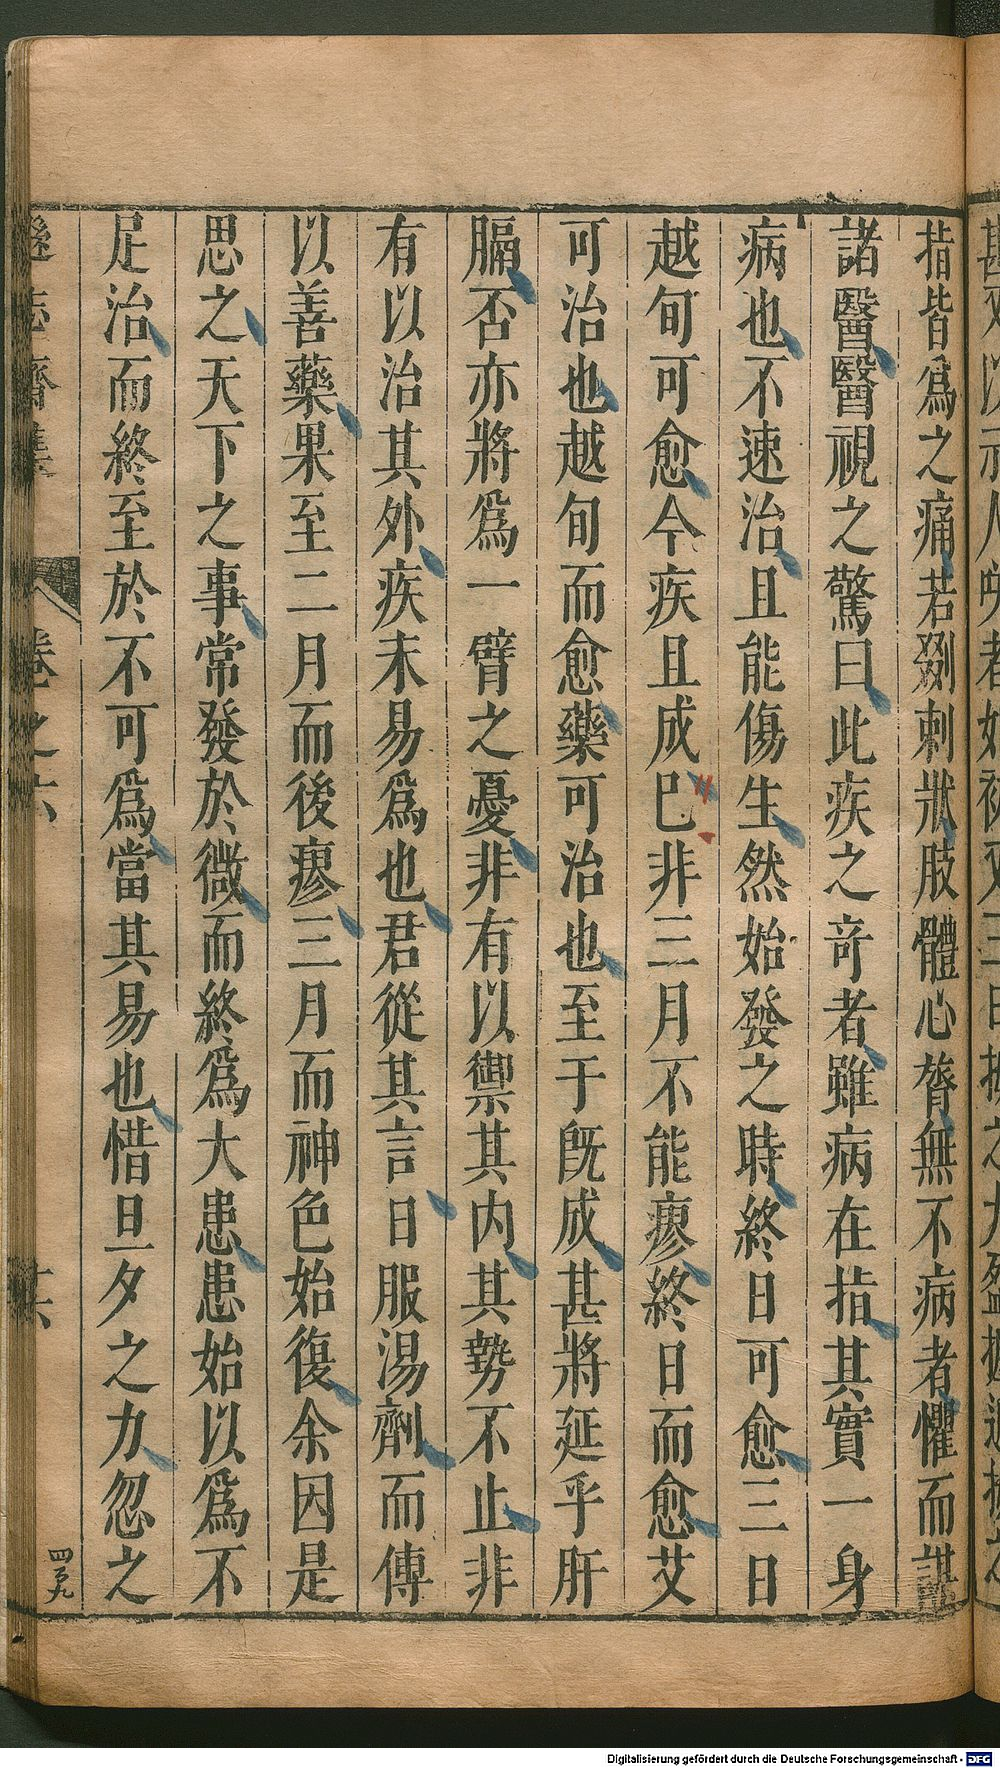 指皆爲之痛若剟刺狀肢體心膂無不病者懼而謀
諸醫醫視之驚曰此疾之奇者雖病在指其實一身
病也不速治且能傷生然始發之時終日可愈三日
越旬可愈今疾且成巳非三月不能瘳終日而愈艾
可治也越旬而愈藥可治也至于旣成甚將延乎肝
膈否亦將爲一臂之憂非有以禦其内其勢不止非
有以治其外疾未易爲也君從其言日服湯劑而傅
以善藥果至二月而後瘳三月而神色始復余因是
思之天下之事常發於微而終爲大患患始以爲不
足治而終至於不可爲當其易也惜旦夕之力忽之
遜志齋集 卷之六 十六
四百九
Digitalisierung gefördert durch die Deutsche Forschungsgemeinschaft - DFG